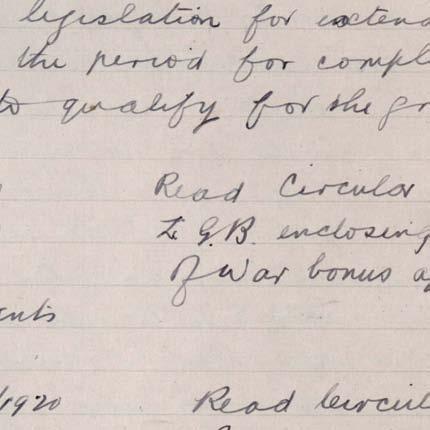 legislation for extend
the period for compl
to qualify for the gr
Read Circular
L.G.B. enclosing
of War bonus a
ents
/1920 Read Circul